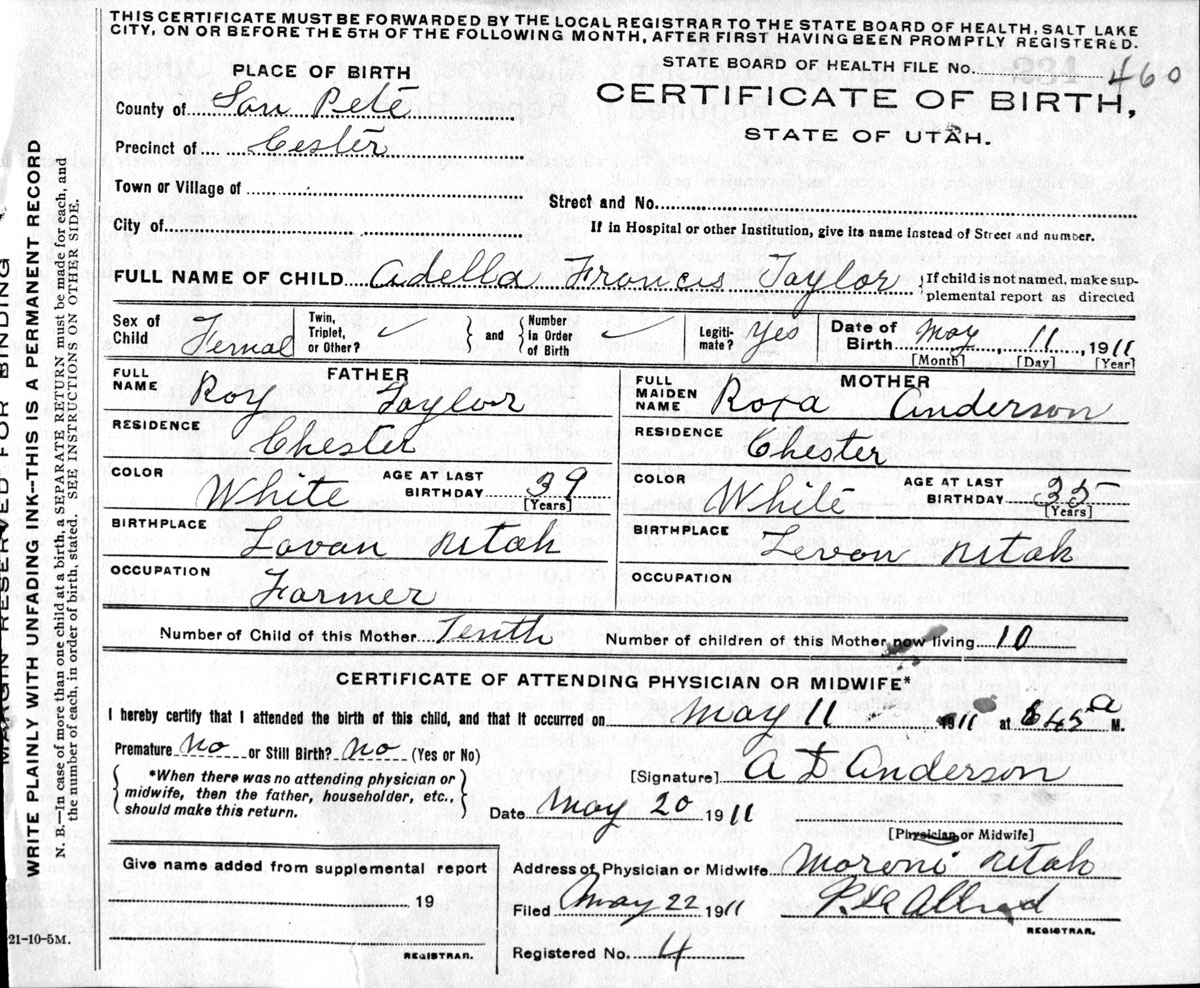 THIS CERTIFICATE MUST BE FORWARDED BY THE LOCAL REGISTRAR TO THE STATE BOARD OF HEALTH, SALT LAKE
CITY, ON OR BEFORE THE 5TH OF THE FOLLOWING MONTH, AFTER FIRST HAVING BEEN PROMPTLY REGISTERED.
PLACE OF BIRTH
STATE BOARD OF HEALTH FILE No. 460
County of San Pete
CERTIFICATE OF BIRTH,
STATE OF UTAH.
Precinct of Cester
Town or Village of
Street and No.
City of
If in Hospital or other Institution, give its name instead of Street and number.
FULL NAME OF CHILD Adella Francis Taylor { If child is not named, make sup-
plemental report as directed
Sex of Child Femal
Twin, Triplet, or Other? ✓ } and { Number in Order of Birth ✓
Legiti-mate? Yes
Date of Birth May, 11, 1911
[Month] [Day] [Year]
FATHER
FULL NAME Roy Taylor
RESIDENCE Chester
COLOR White AGE AT LAST BIRTHDAY 39
[Years]
BIRTHPLACE Lavan Utah
OCCUPATION Farmer
MOTHER
FULL MAIDEN NAME Rosa Anderson
RESIDENCE Chester
COLOR White AGE AT LAST BIRTHDAY 35
[Years]
BIRTHPLACE Levon Utah
OCCUPATION
Number of Child of this Mother Tenth Number of children of this Mother now living 10
CERTIFICATE OF ATTENDING PHYSICIAN OR MIDWIFE*
I hereby certify that I attended the birth of this child, and that it occurred on May 11 1911 at 645 a M.
Premature no or Still Birth? no (Yes or No)
{ *When there was no attending physician or
midwife, then the father, householder, etc.,
should make this return. }
[Signature] A D Anderson
Date May 20 1911
[Physician or Midwife]
Give name added from supplemental report
19
REGISTRAR.
Address of Physician or Midwife Moroni Utah
Filed May 22 1911 Allred
REGISTRAR.
Registered No. 4
21-10-5M.
MARGIN RESERVED FOR BINDING
WRITE PLAINLY WITH UNFADING INK--THIS IS A PERMANENT RECORD
N. B.—In case of more than one child at a birth, a SEPARATE RETURN must be made for each, and
the number of each, in order of birth, stated. SEE INSTRUCTIONS ON OTHER SIDE.